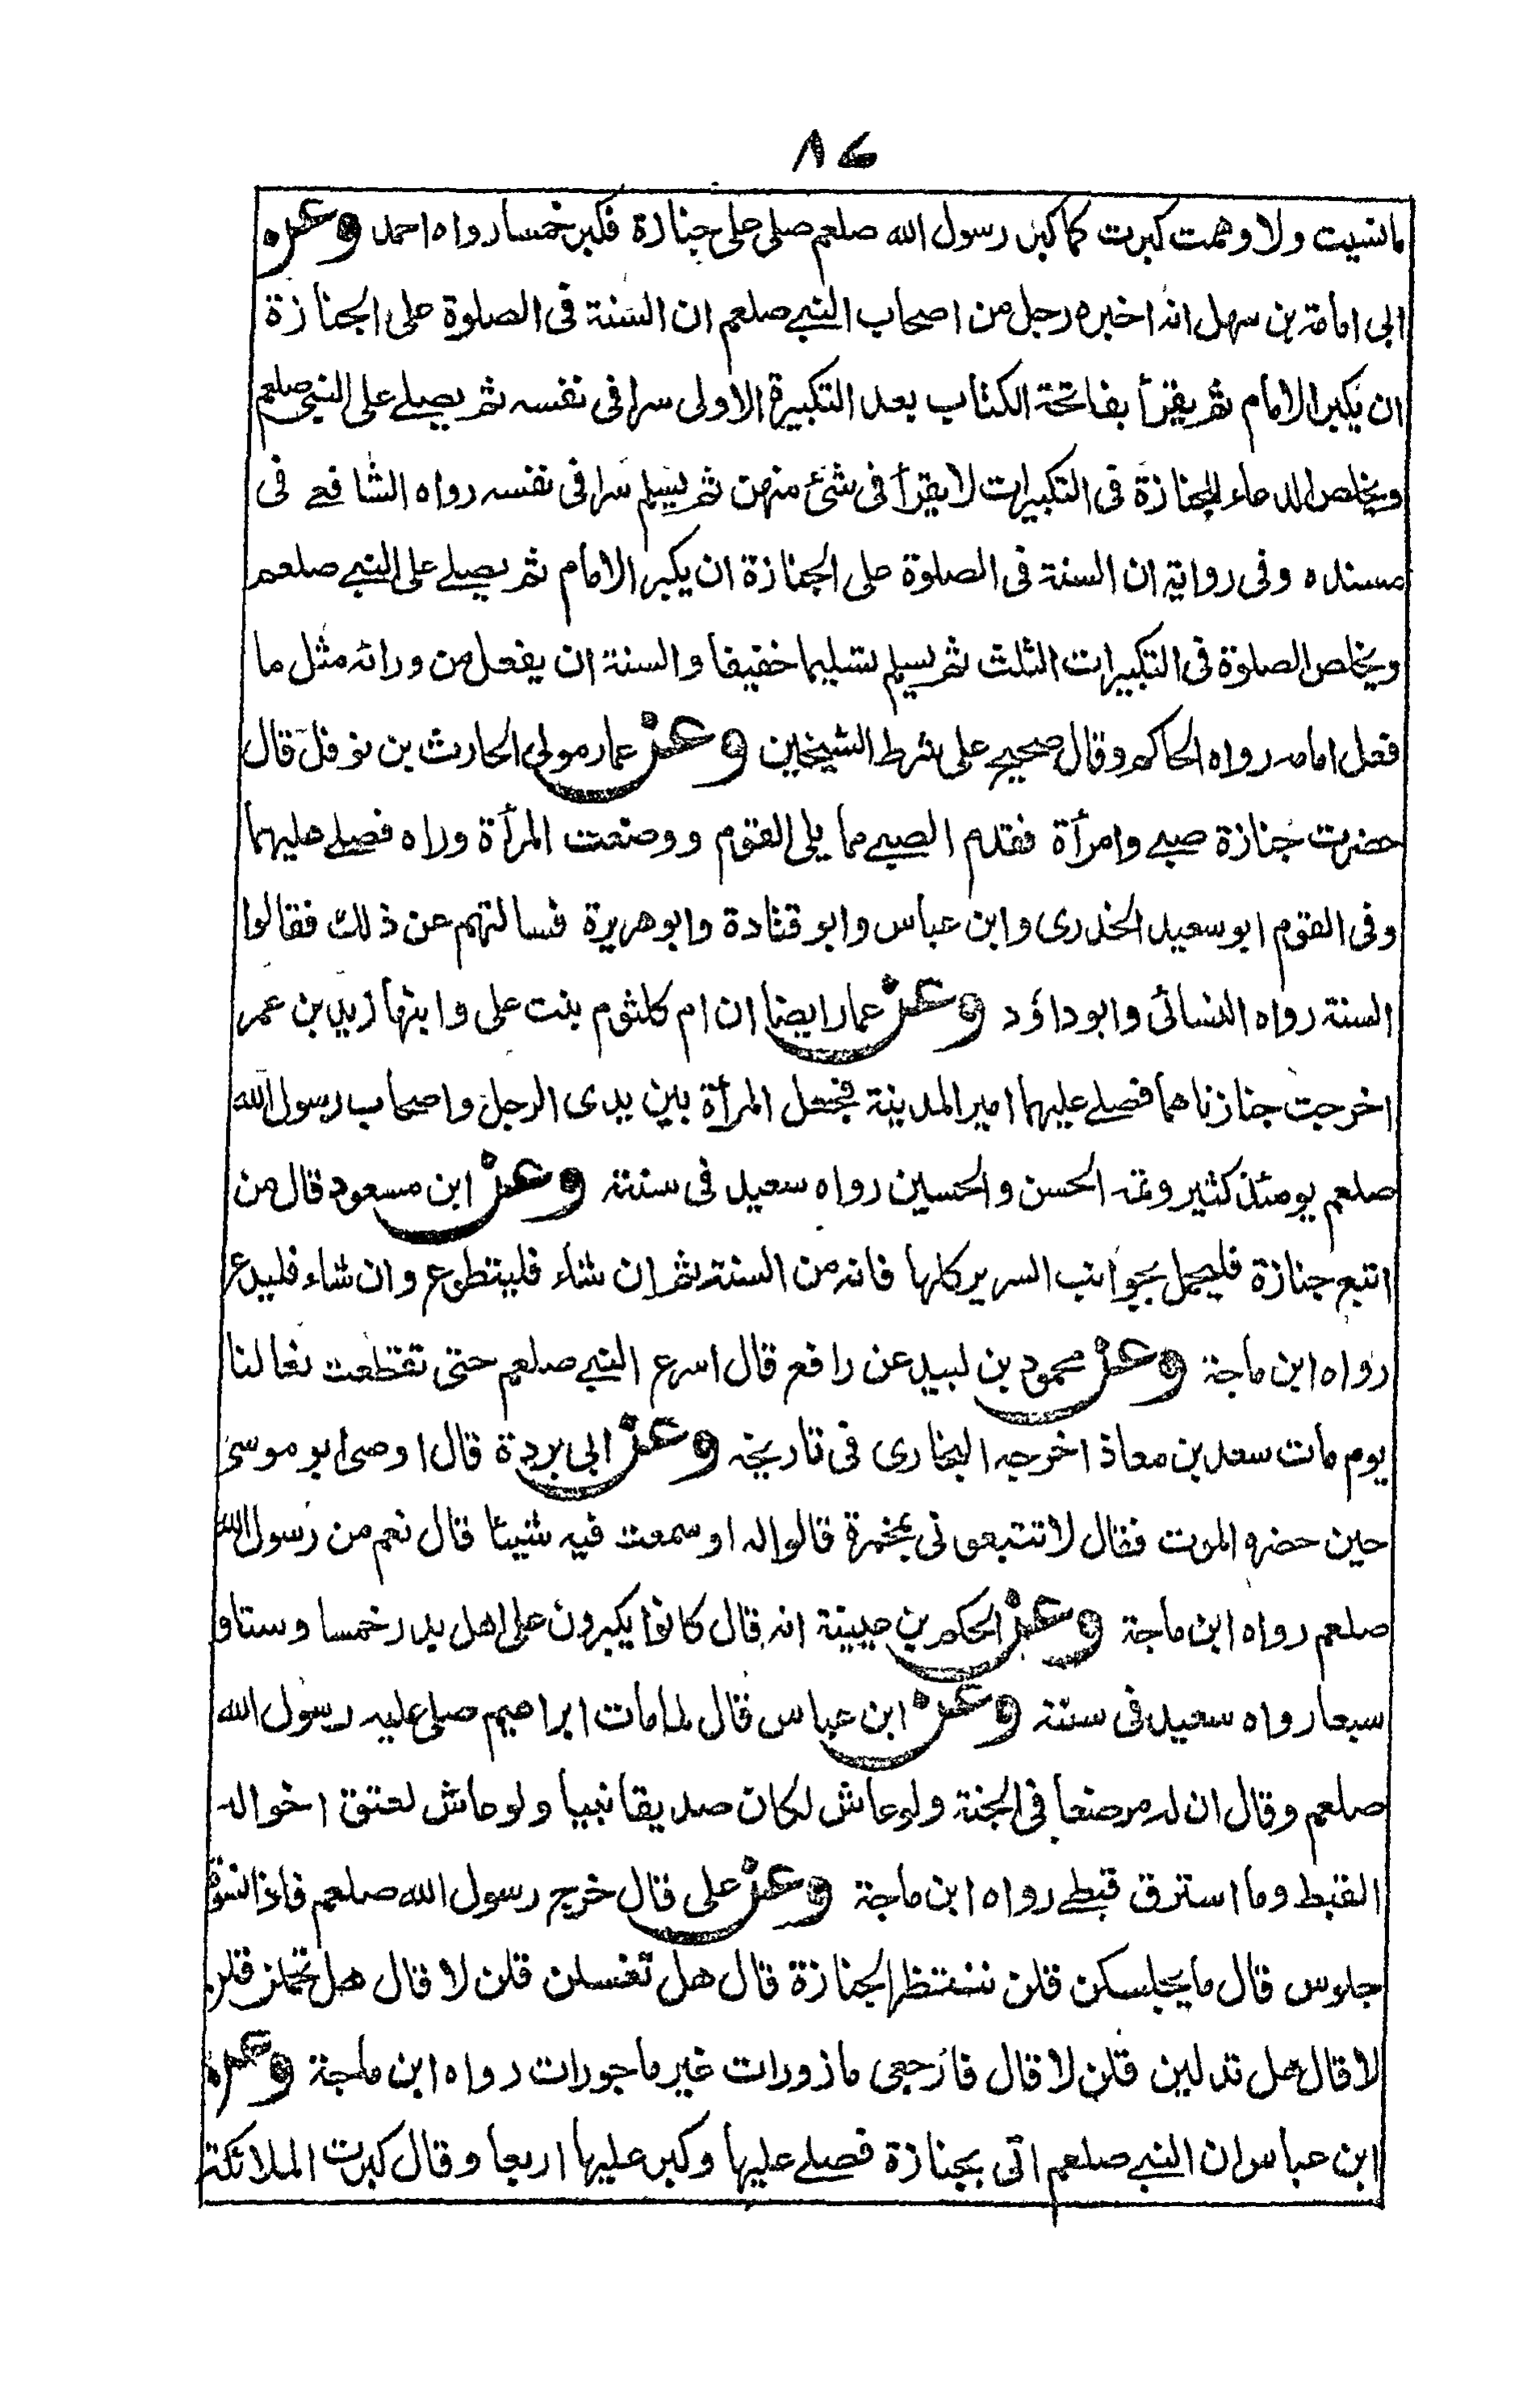 ٨٤
مانسيت ولا وهمت كبرت كما كبر رسول الله صلعم صلى على جنازة فكبر خمسا رواه احمد وعن
ابى امامة بن سهل انه اخبره رجل من اصحاب النبي صلعم ان السنة فى الصلوة على الجنازة
ان يكبر الامام ثم يقرأ بفاتحة الكتاب بعد التكبيرة الاولى سرا فى نفسه ثم يصلے على النبي صلعم
ويخلص الدعاء للجنازة فى التكبيرات لا يقرأ فى شئ منهن ثم يسلم سرا فى نفسه رواه الشافعے فى
مسنده وفى رواية ان السنة فى الصلوة على الجنازة ان يكبر الامام ثم يصلے على النبے صلعم
ويخلص الصلوة فى التكبيرات الثلث ثم يسلم تسليما خفيفا والسنة ان يفعل من ورائه مثل ما
فعل امامه رواه الحاكم وقال صحيح على شرط الشيخين وعن عمار مولى الحارث بن نوفل قال
حضرت جنازة صبے وامرأة فقدم الصبے مما يلى القوم ووضعت المرأة وراه فصلے عليهما
وفى القوم ابو سعيد الخدرى وابن عباس وابو قتادة وابو هريرة فسالتهم عن ذلك فقالوا
السنة رواه النسائى وابو داؤد وعن عمار ايضا ان ام كلثوم بنت على وابنها زيد بن عمر
اخرجت جنازتاهما فصلے عليهما امير المدينة فجعل المرأة بين يدى الرجل واصحاب رسول الله
صلعم يومئذ كثير وثمه الحسن والحسين رواه سعيد فى سننه وعن ابن مسعود قال من
اتبع جنازة فليحمل بجوانب السرير كلها فانه من السنة ثم ان شاء فليتطوع وان شاء فليدع
رواه ابن ماجة وعن محمود بن لبيد عن رافع قال اسرع النبے صلعم حتى تقطعت نعالنا
يوم مات سعد بن معاذ اخرجه البخارى فى تاريخه وعن ابى بردة قال اوصى ابو موسى
حين حضره الموت فقال لا تتبعونى بمجمرة قالوا له اوسمعت فيه شيئا قال نعم من رسول الله
صلعم رواه ابن ماجة وعن الحكم بن عيينة انه قال كانوا يكبرون على اهل بدر خمسا وستا و
سبعا رواه سعيد فى سننه وعن ابن عباس قال لما مات ابراهيم صلى عليه رسول الله
صلعم وقال ان له مرضعا فى الجنة ولو عاش لكان صديقا نبيا ولو عاش لعتق اخواله
القبط وما استرق قبطے رواه ابن ماجة وعن على قال خرج رسول الله صلعم فاذا نسوة
جلوس قال ما يجلسكن قلن ننتظر الجنازة قال هل تغسلن قلن لا قال هل تحملن قلن
لا قال هل تدلين قلن لا قال فارجعى مازورات غير ماجورات رواه ابن ماجة وعن
ابن عباس ان النبے صلعم اتى بجنازة فصلے عليها وكبر عليها اربعا وقال كبرت الملائكة